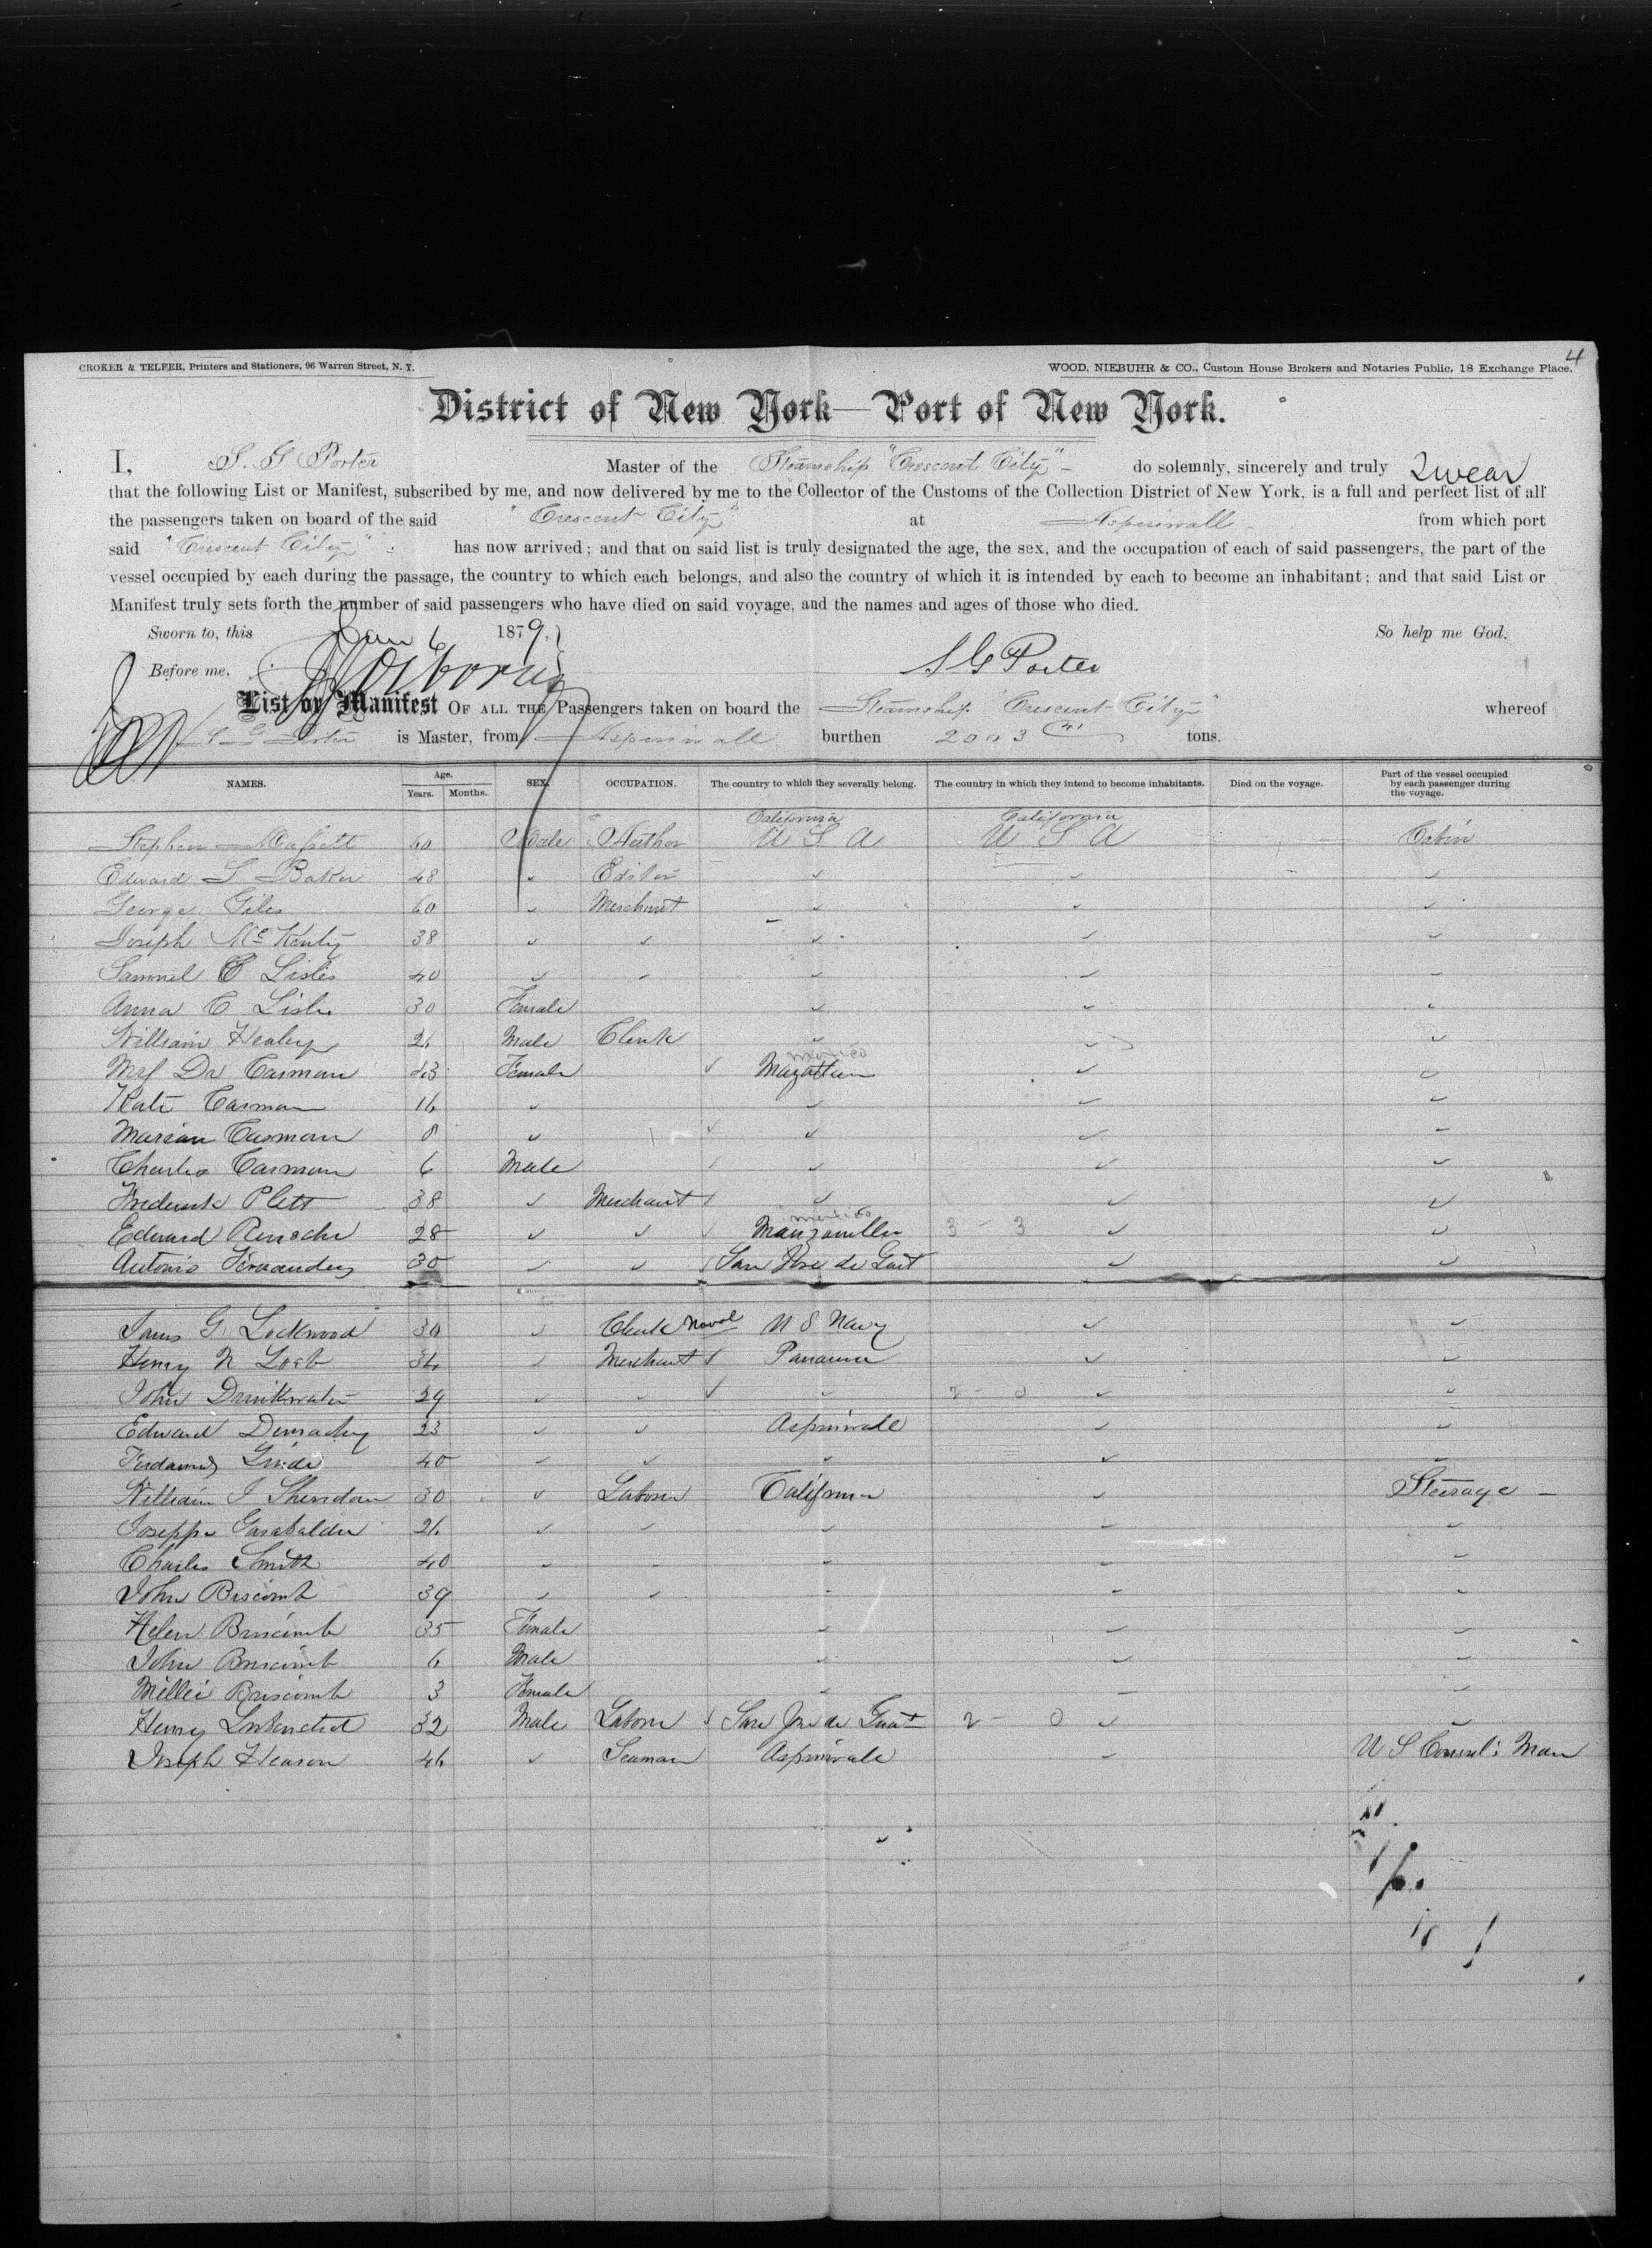 4
CROKER & TELFER, Printers and Stationers, 96 Warren Street, N. Y. WOOD, NIEBUHR & CO., Custom House Brokers and Notaries Public, 18 Exchange Place.
District of New York—Port of New York.
I, S. G Porter Master of the Steamship "Crescent City" - do solemnly, sincerely and truly swear
that the following List or Manifest, subscribed by me, and now delivered by me to the Collector of the Customs of the Collection District of New York, is a full and perfect list of all
the passengers taken on board of the said "Crescent City" at Aspinwall from which port
said "Crescent City" has now arrived; and that on said list is truly designated the age, the sex, and the occupation of each of said passengers, the part of the
vessel occupied by each during the passage, the country to which each belongs, and also the country of which it is intended by each to become an inhabitant; and that said List or
Manifest truly sets forth the number of said passengers who have died on said voyage, and the names and ages of those who died.
Sworn to, this Jan 6 1879. So help me God.
Before me, S G Porter
List or Manifest OF ALL THE Passengers taken on board the Steamship "Crescent City" whereof
S G Porter is Master, from Aspinwall burthen 2003 tons.
NAMES. Age. Years. Months. SEX. OCCUPATION. The country to which they severally belong. The country in which they intend to become inhabitants. Died on the voyage. Part of the vessel occupied by each passenger during the voyage.
California California
Stephen Massett 60 Male Author U S A U S A Cabin
Edward S Baker 48 Editor
George Giles 60 Merchant
Joseph McKenty 38
Samuel C Lisle 40
Anna C Lisle 30 Female
William Healy Male Clerk
Mexico
Mrs Dr Carman 43 Female
Kate Carman 16
Marian Carman 8
Charles Carman 6 Male
Frederick Plett 38 Merchant
Mexico
Edward 28 Manzanillo 3 - 3
Antonio 30 San Jose de Guat
James G. Lockwood 30 Clerk Naval U S Navy
Henry N Loeb Merchant Panama
John Drinkwater 29 2 - 0
Edward 23 Aspinwall
40
William J Sheridan 30 Laborer California Steerage
26
Charles Smith 40
John Biscomb 39
Helen Briscomb 35 Female
John Briscomb 6 Male
Millie Briscomb 3 Female
Henry 32 Male Laborer San Jose de Guat 2 - 0
Joseph Heason 46 Seaman Aspinwall U S Consul's Man